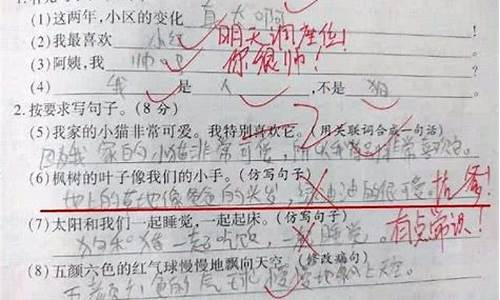 (1)这两年,小区的变化真大啊
(2)我最喜欢小红 明天调座位!
(3)阿姨,我帅吧 你很帅!
(4)我是人,不是狗
2.按要求写句子。(8分)
(5)我家的小猫非常可爱。我特别喜欢它。(用关联词合成一句话)
因为我家的小猫非常可爱,所以我特别非常喜欢它。
(6)枫树的叶子像我们的小手。(仿写句子)
地上的草地像爸爸的头发,绿油油的很可爱。
(7)太阳和我们一起睡觉,一起起床。(仿写句子) 有点常识!
狗和猪一起吃饭,一起睡觉。
(8)五颜六色的红气球慢慢地飘向天空。(修改病句)
五颜六色的气球慢慢地飘上天空。